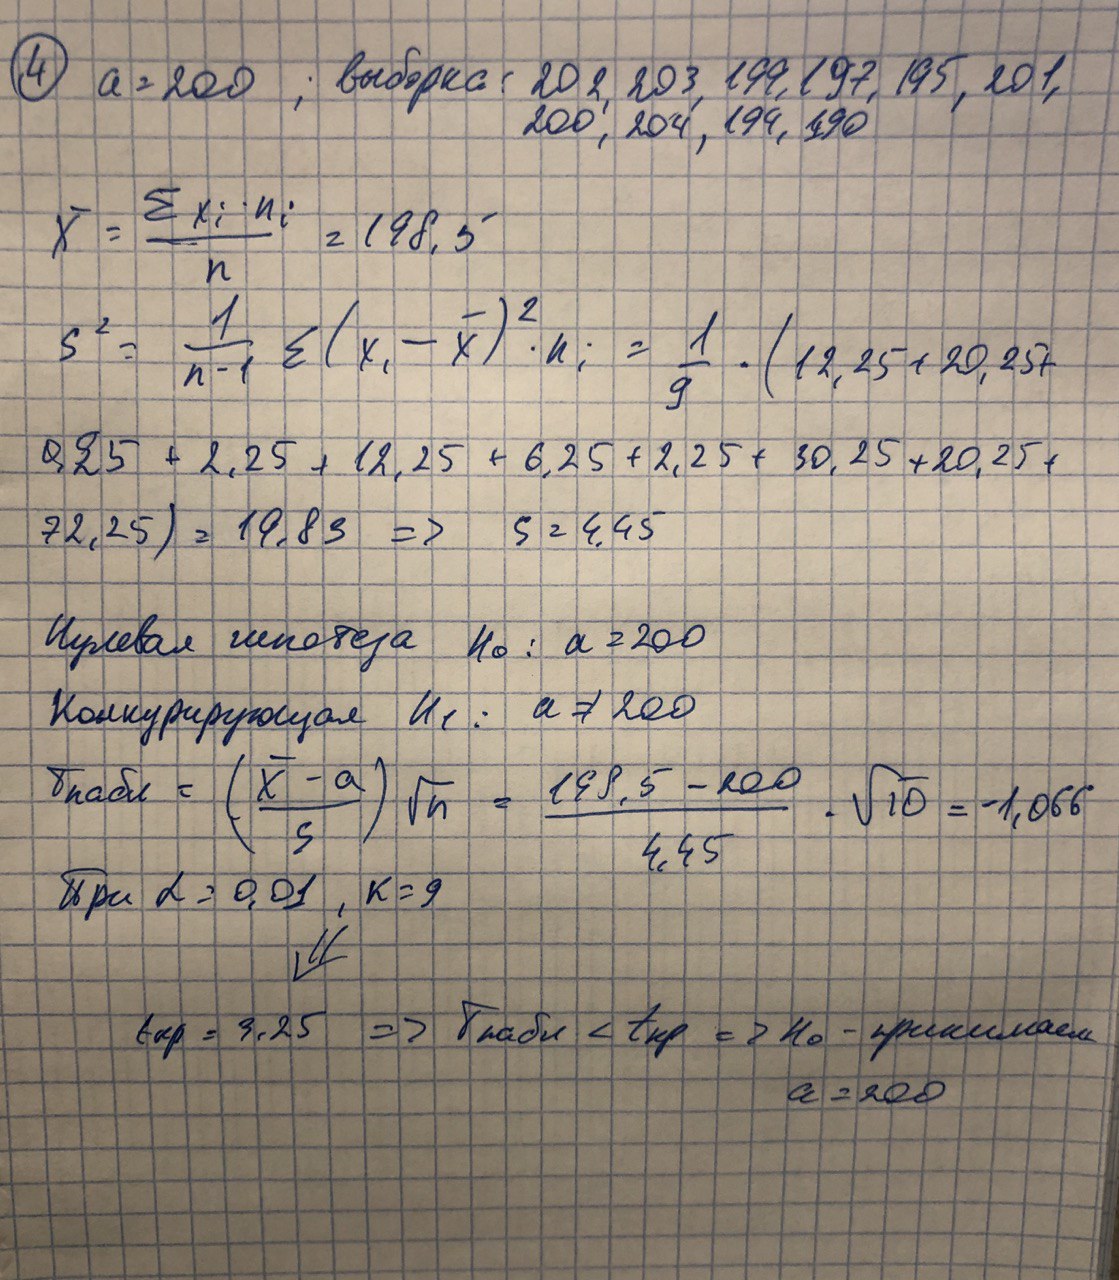 4 a = 200 ; выборка: 202, 203, 199, 197, 195, 201,
200, 204, 194, 190
x̄ = Σ xᵢ · nᵢ / n = 198,5
S² = 1/(n-1) Σ(xᵢ - x̄)² · nᵢ = 1/9 · (12,25 + 20,25 +
0,25 + 2,25 + 12,25 + 6,25 + 2,25 + 30,25 + 20,25 +
72,25) = 19,83 => S = 4,45
Нулевая гипотеза H₀ : a = 200
Конкурирующая H₁ : a ≠ 200
Tнабл = ((x̄ - a)/S) √n = (198,5 - 200)/4,45 · √10 = -1,066
При α = 0,01 , K = 9
tкр = 3,25 => Tнабл < tкр => H₀ - принимаем
a = 200